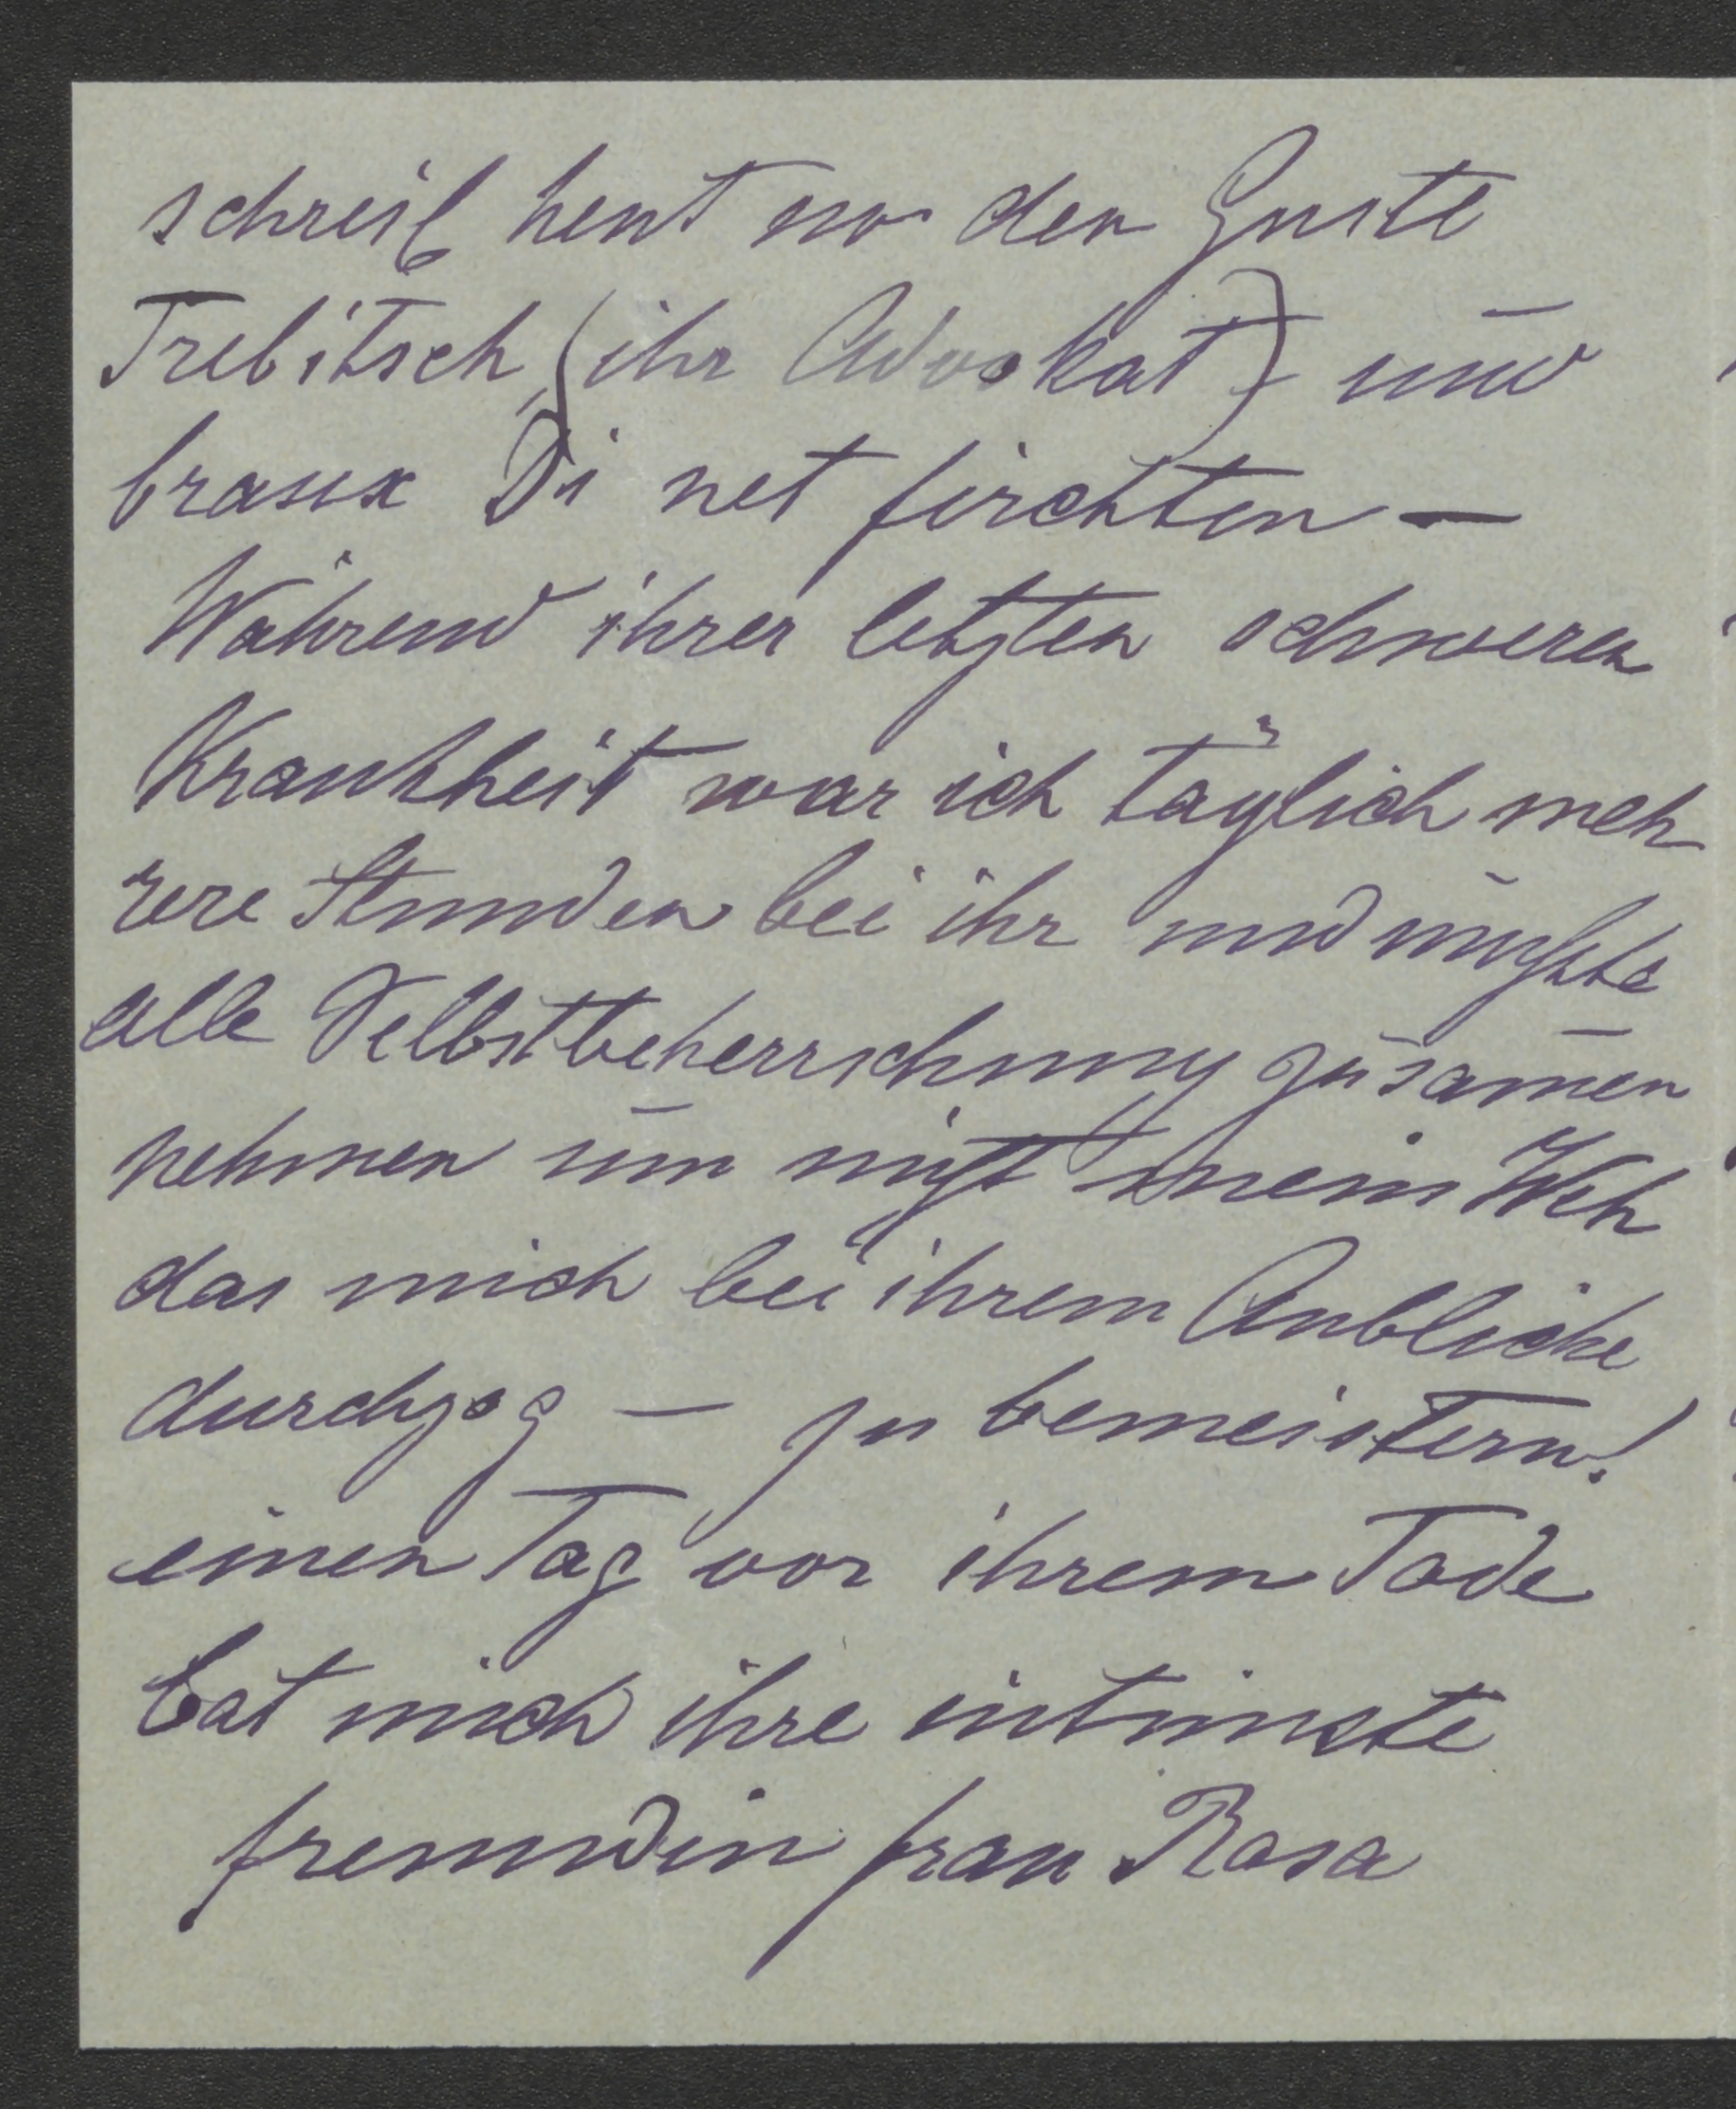 schreib heut no den Gustl
Trebitsch (ihr Advokat) und
braux Di net firchten —
Während ihrer letzten schweren
Krankheit war ich täglich meh
rere Stunden bei ihr und mußte
alle Selbstbeherrschung zusam̄en
nehmen um nicht mein Weh
das mich bei ihrem Anblicke
durchzog — zu bemeistern!
einen Tag vor ihrem Tode
bat mich ihre intimste
freundin frau Rosa